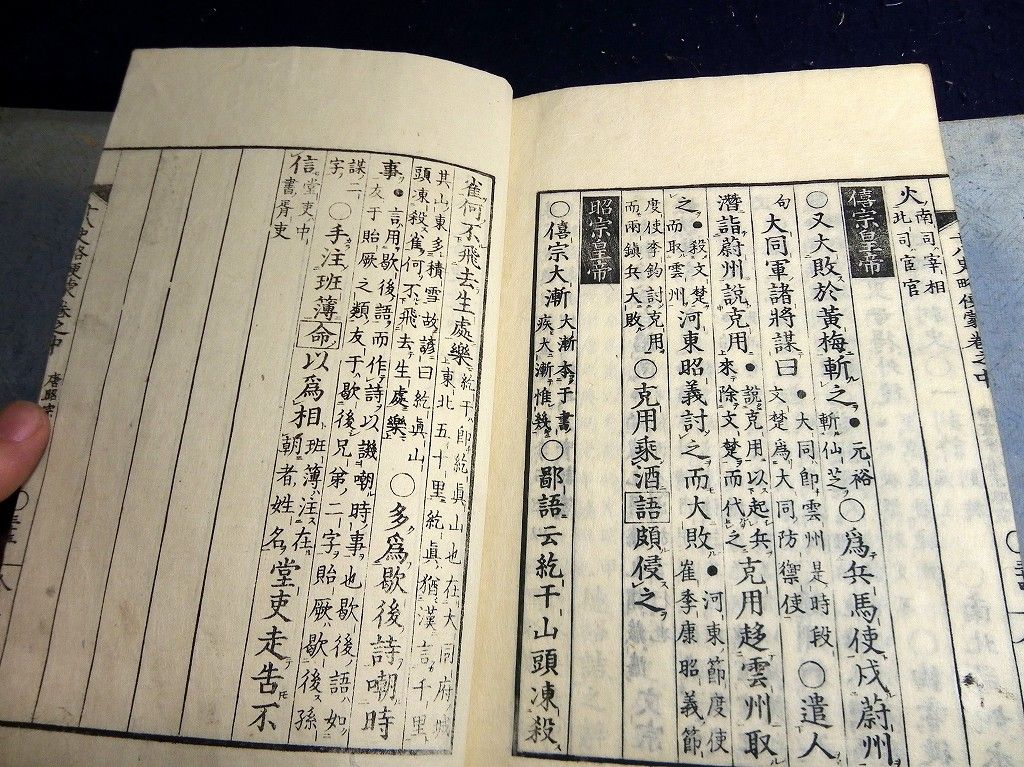 史略便蒙卷之中
火
南司宰相
北司宦官
僖宗皇帝
○又大敗於黃梅斬之
●元裕
斬仙芝
○為兵馬使戍蔚州
句
大同軍諸將謀曰
●大同卽雲州是時段
文楚爲大同防禦使
○遣人
潛詣蔚州說克用
●說克用以起兵
來除文楚而代之
克用趍雲州取
之
●殺文楚
而取雲州
河東昭義討之而大敗
●河東節度使
崔季康昭義節
度使李鈞討克用
而兩鎮兵大敗
○克用乘酒語頗侵之
昭宗皇帝
○僖宗大漸
大漸本于書
疾大漸惟幾
○鄙語云紇干山頭凍殺
雀何不飛去生處樂
紇干卽紇眞山也在大同府城
上東北五十里紇眞猶漢言千里
其山東多積雪故諺曰紇眞山
頭凍殺雀何不飛去生處樂
○多爲歇後詩嘲時
事
●言用歇後語而作詩以譏嘲時事也歇後語如
友于貽厥之類友于歇後兄弟二字貽厥歇後孫
謀二
字
○手注班簿命以爲相
班簿注在
朝者姓名
堂吏走告不
信
堂吏中
書胥吏
十八史略便蒙卷之中
唐昭宗